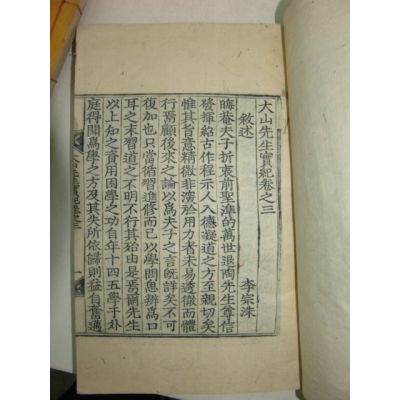 大山先生實紀卷之三
敘述 李宗洙
晦菴夫子折衷前聖準的萬世退陶先生尊信
發揮紹古作程示人入德凝道之方至親切矣
惟其旨意精微非深於用力者未易透徹而體
行焉顧後來之論以爲夫子之言旣詳矣不可
復加也只當循習進修而已以學問思辨爲口
耳之末習道之不明不行其殆由是焉爾先生
以上知之資用困學之功自年十四五學于外
庭得聞爲學之方及其失所依歸則猛自奮邁
大山先生實紀卷三 一